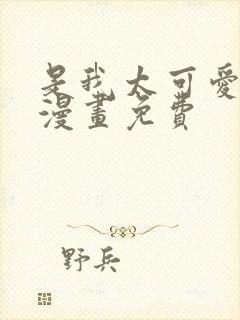 是我太可愛
漫畫免費
野兵